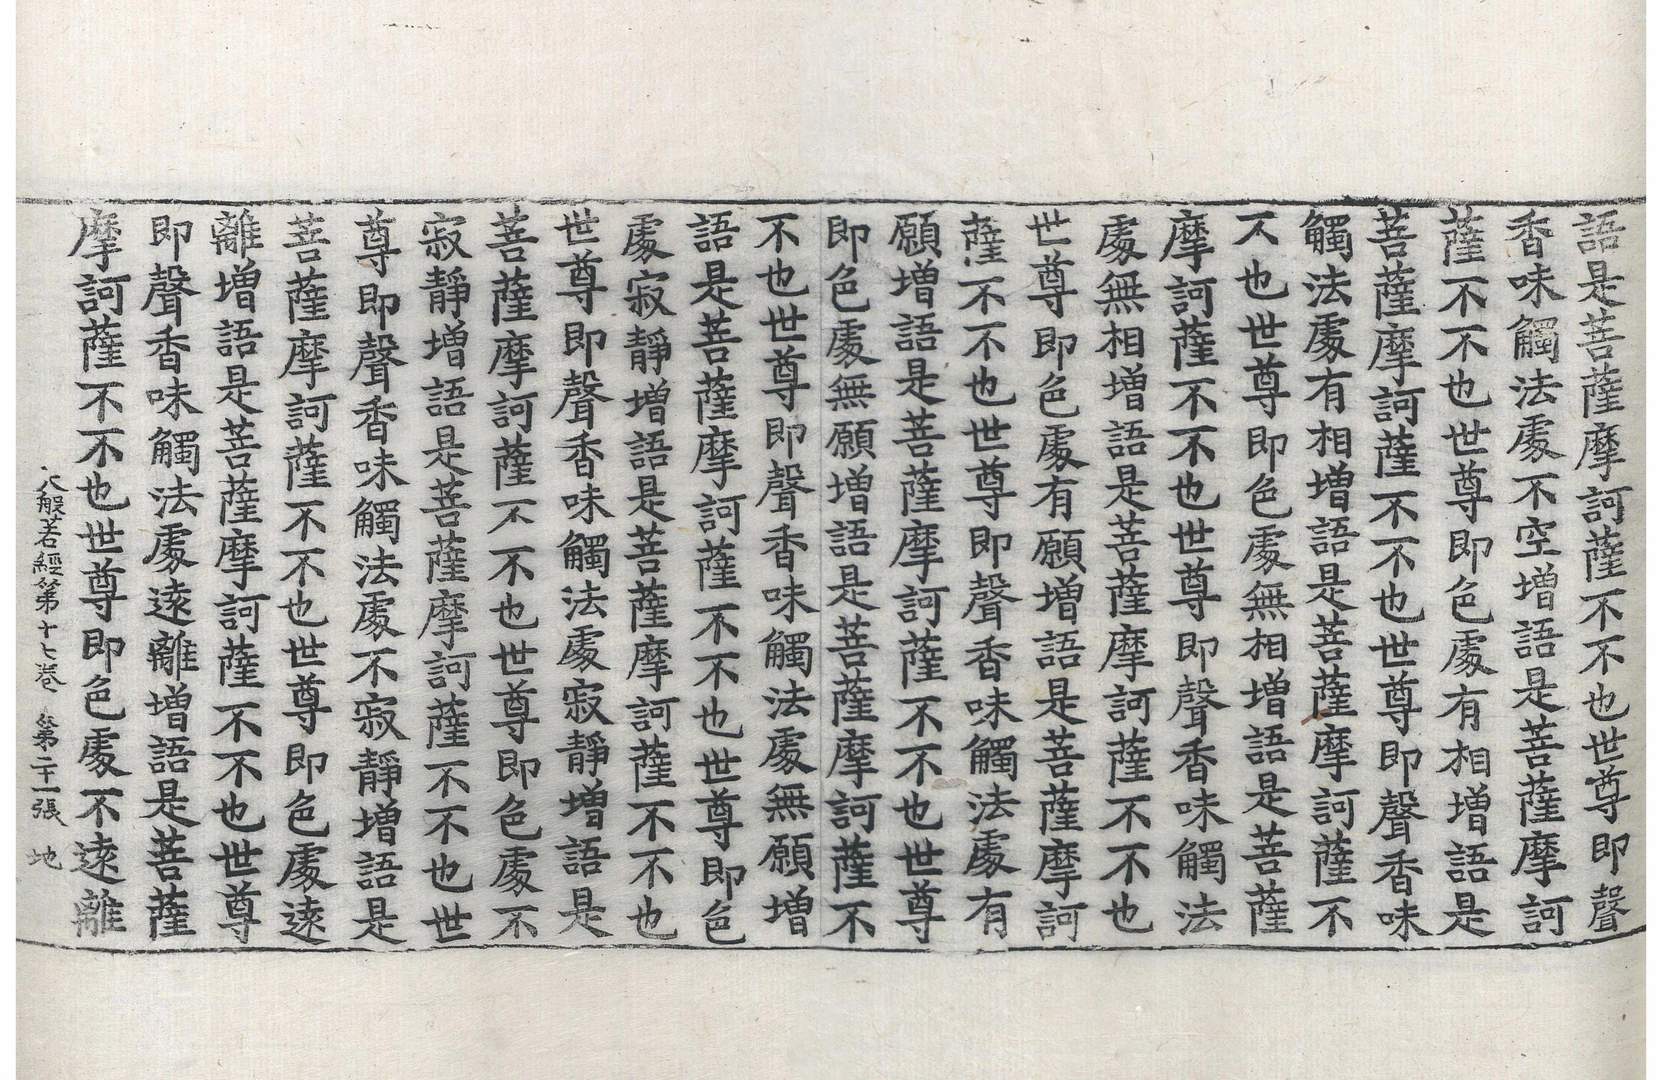 語是菩薩摩訶薩不不也世尊即聲
香味觸法處不空增語是菩薩摩訶
薩不不也世尊即色處有相增語是
菩薩摩訶薩不不也世尊即聲香味
觸法處有相增語是菩薩摩訶薩不
不也世尊即色處無相增語是菩薩
摩訶薩不不也世尊即聲香味觸法
處無相增語是菩薩摩訶薩不不也
世尊即色處有願增語是菩薩摩訶
薩不不也世尊即聲香味觸法處有
願增語是菩薩摩訶薩不不也世尊
即色處無願增語是菩薩摩訶薩不
不也世尊即聲香味觸法處無願增
語是菩薩摩訶薩不不也世尊即色
處寂靜增語是菩薩摩訶薩不不也
世尊即聲香味觸法處寂靜增語是
菩薩摩訶薩不不也世尊即色處不
寂靜增語是菩薩摩訶薩不不也世
尊即聲香味觸法處不寂靜增語是
菩薩摩訶薩不不也世尊即色處遠
離增語是菩薩摩訶薩不不也世尊
即聲香味觸法處遠離增語是菩薩
摩訶薩不不也世尊即色處不遠離
大般若經第十七卷 第二十一張 地